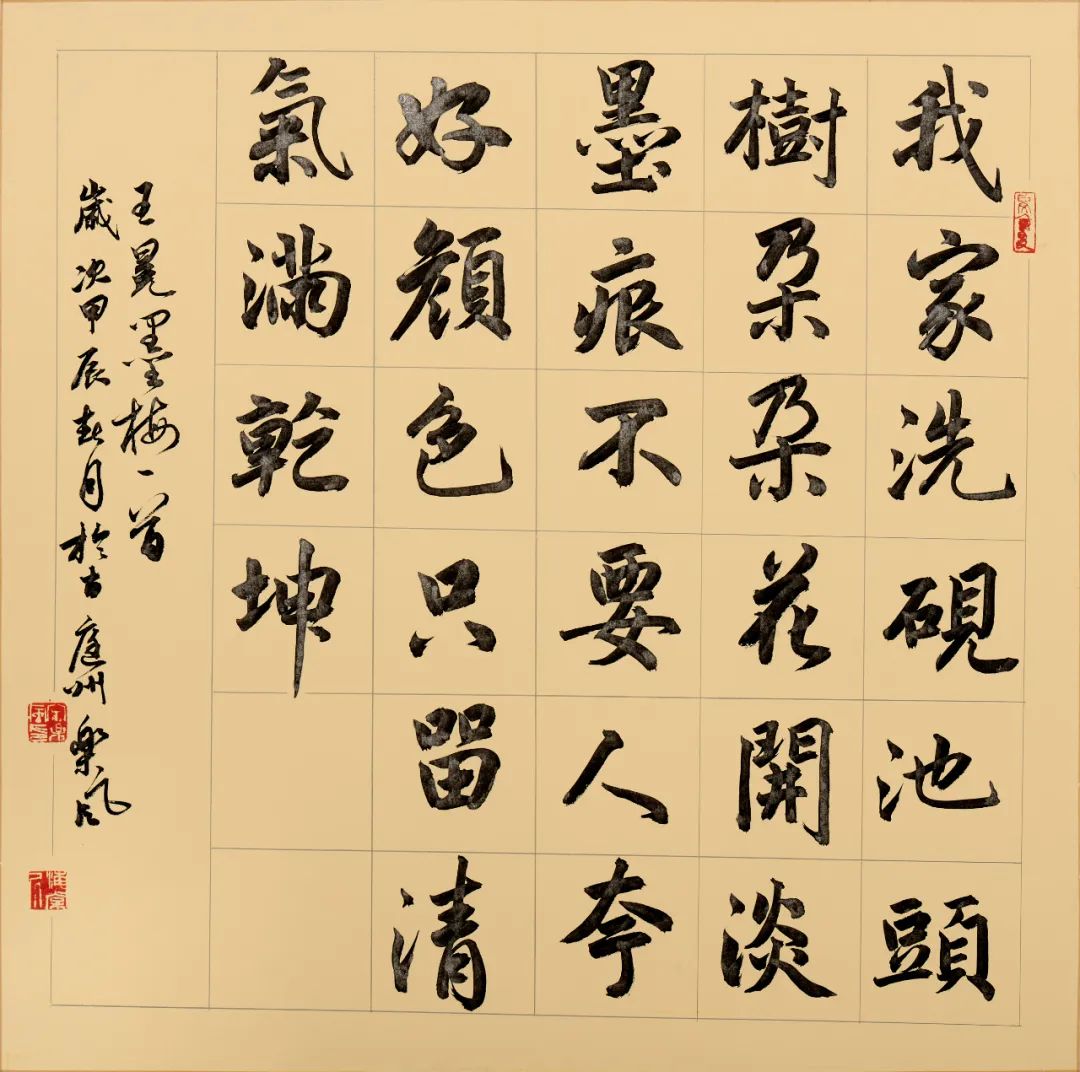 我家洗硯池頭
樹朵朵花開淡
墨痕不要人夸
好顏色只留清
氣滿乾坤
王冕墨梅一首
歲次甲辰春月於古庭州樂風